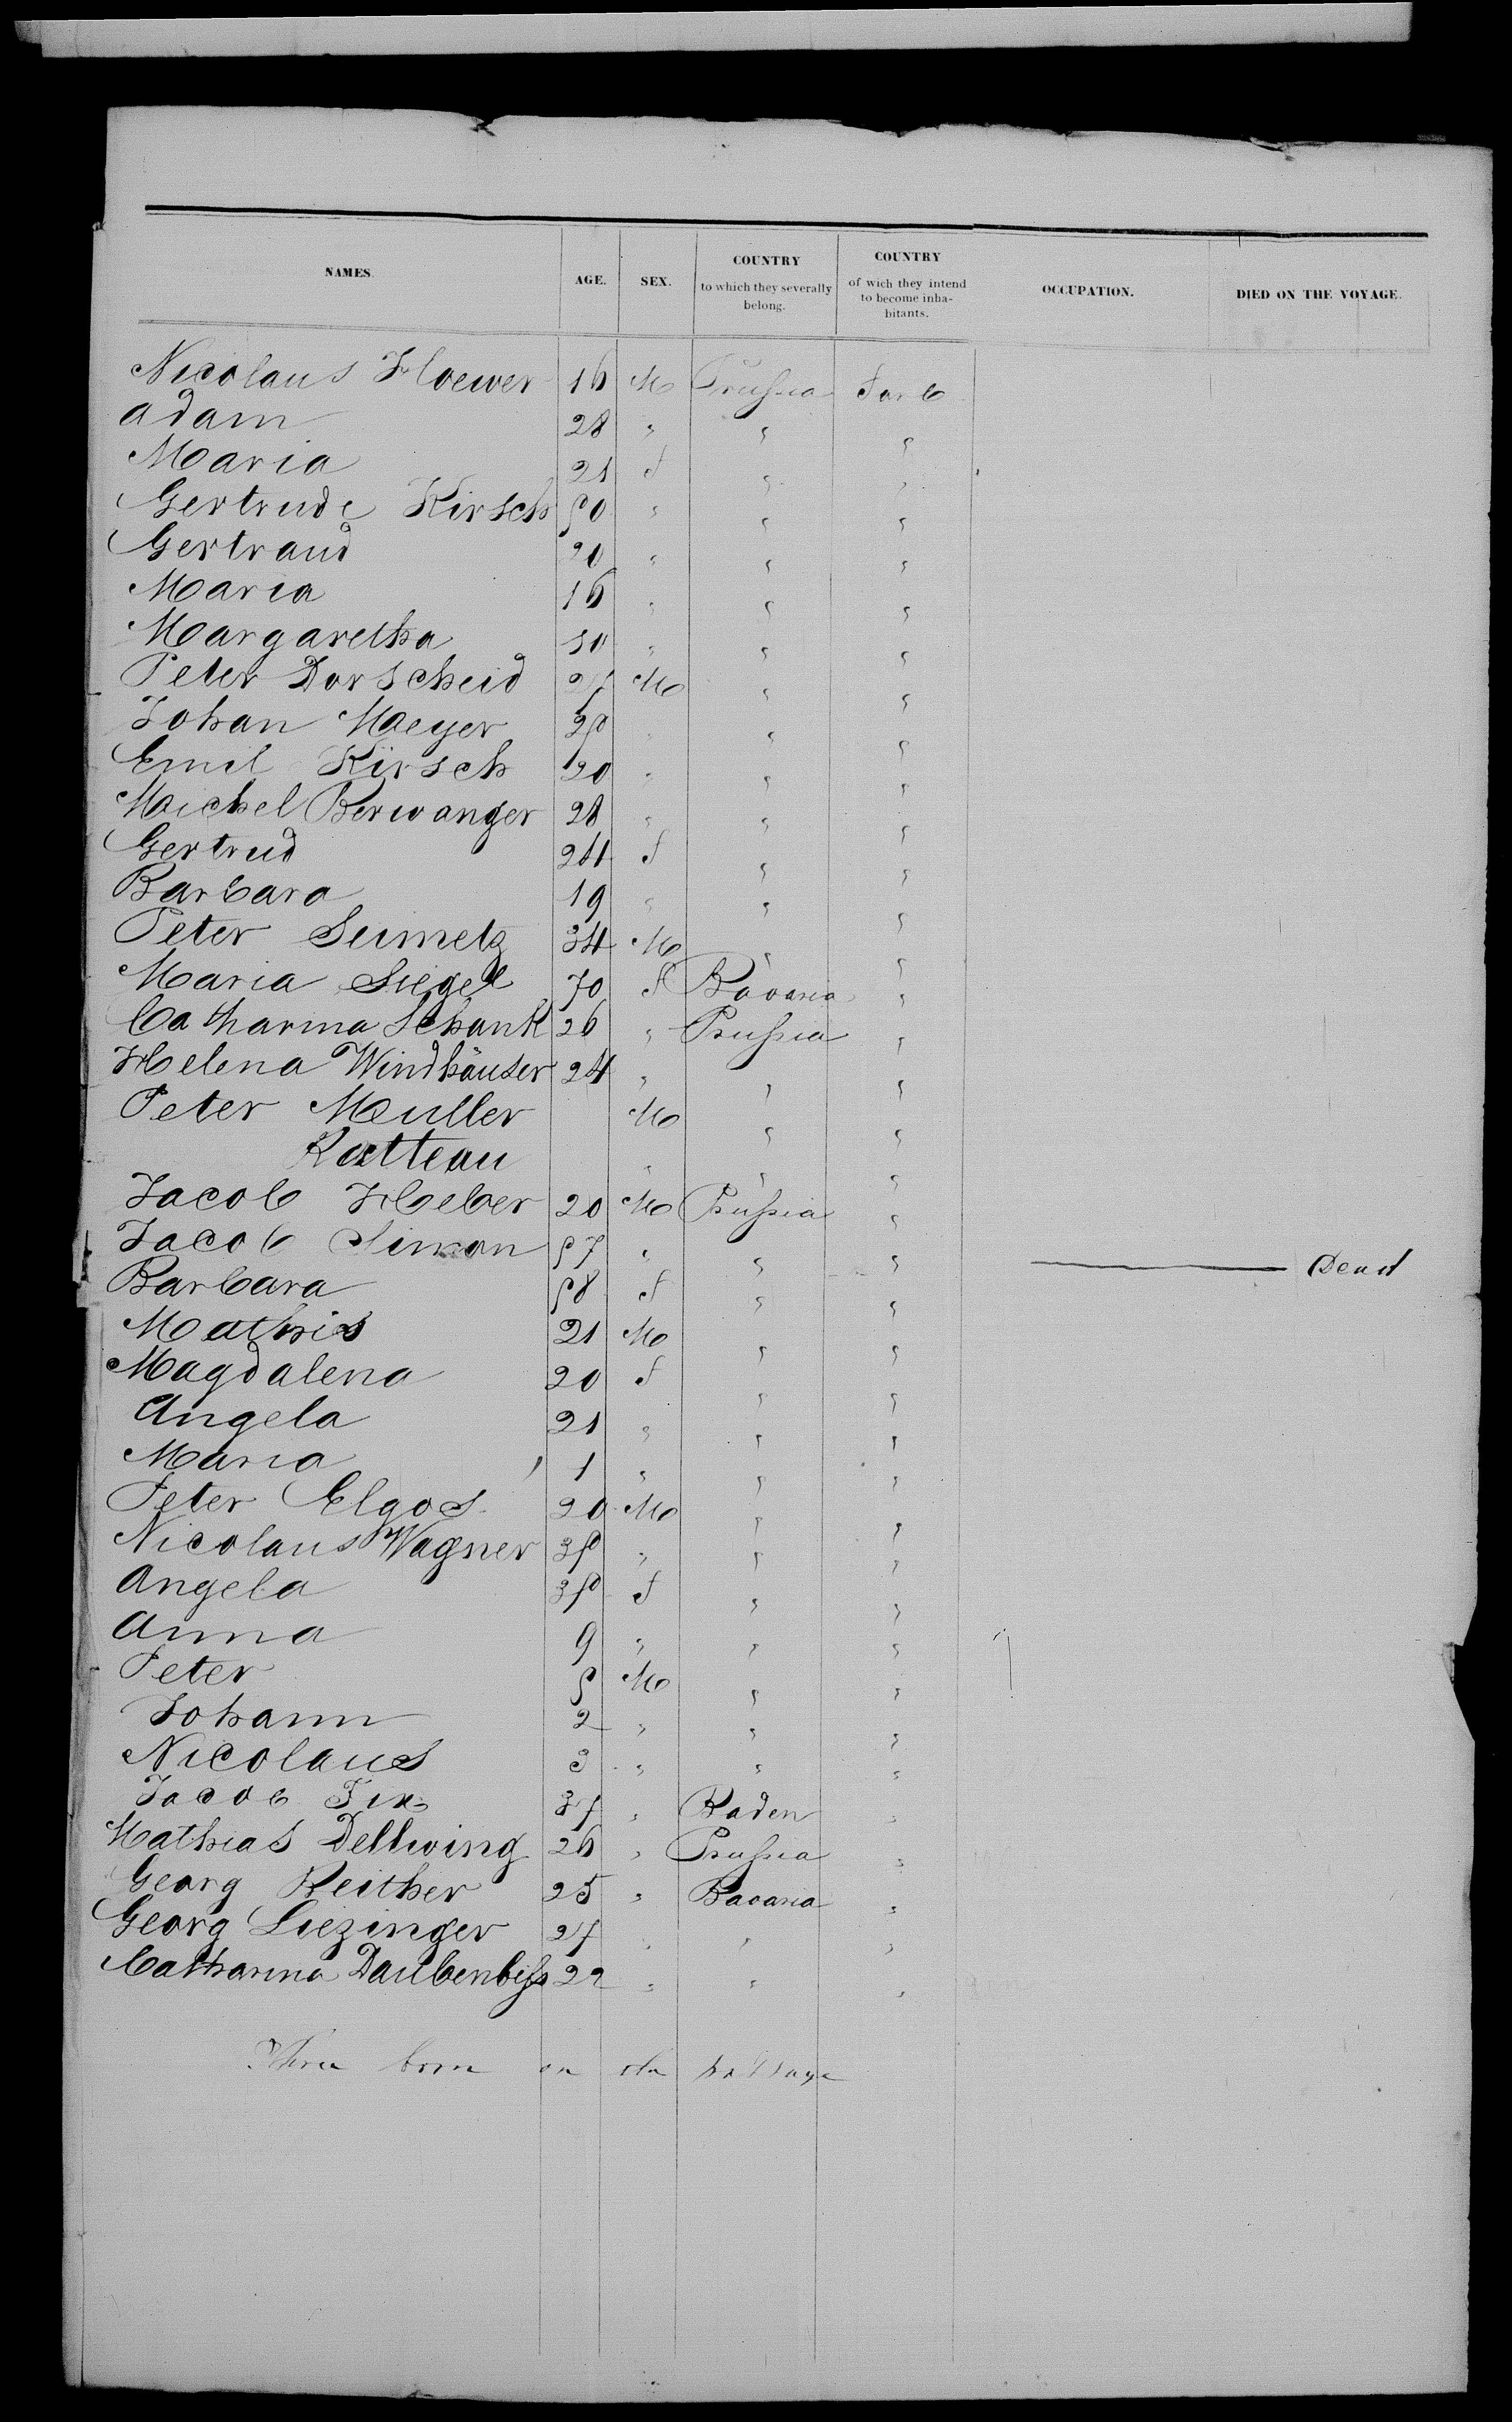 NAMES. AGE. SEX. COUNTRY to which they severally belong. COUNTRY of wich they intend to become inhabitants. OCCUPATION. DIED ON THE VOYAGE.
Nicolaus Hoewer 16 M Prussia
Adam 28 " " "
Maria 21 f " "
Gertrude Kirsch 50 " " "
Gertraud 20 " " "
Maria 16 " " "
Margaretha " " "
Peter Dorscheid M " "
Johan Meyer 25 " " "
Emil Kirsch 20 " " "
Michel Berwanger 28 " " "
Gertrud 24 f " "
Barbara 19 " " "
Peter Seimetz 34 M " "
Maria Siegel 70 f Bavaria "
Catharina Schank 26 " Prussia "
Helena Windhäuser 24 " " "
Peter Muller M " "
Ratteau " " "
Jacob Heber 20 M Prussia "
Jacob Simon 57 " " " Dead
Barbara 58 f " "
Mathis 21 M " "
Magdalena 20 f " "
Angela 21 " " "
Maria 1 " " "
Peter Elgos 20 M " "
Nicolaus Wagner 35 " " "
Angela 35 f " "
Anna 9 " " "
Peter 5 M " "
Johann 2 " " "
Nicolaus 3 " " "
Jacob Fix 37 " Baden "
Mathias Dellwing 26 " Prussia "
Georg Reither 25 " Bavaria "
Georg Liezinger 27 " " "
Catharina Daubenbiss 22 " " "
Three born on the passage